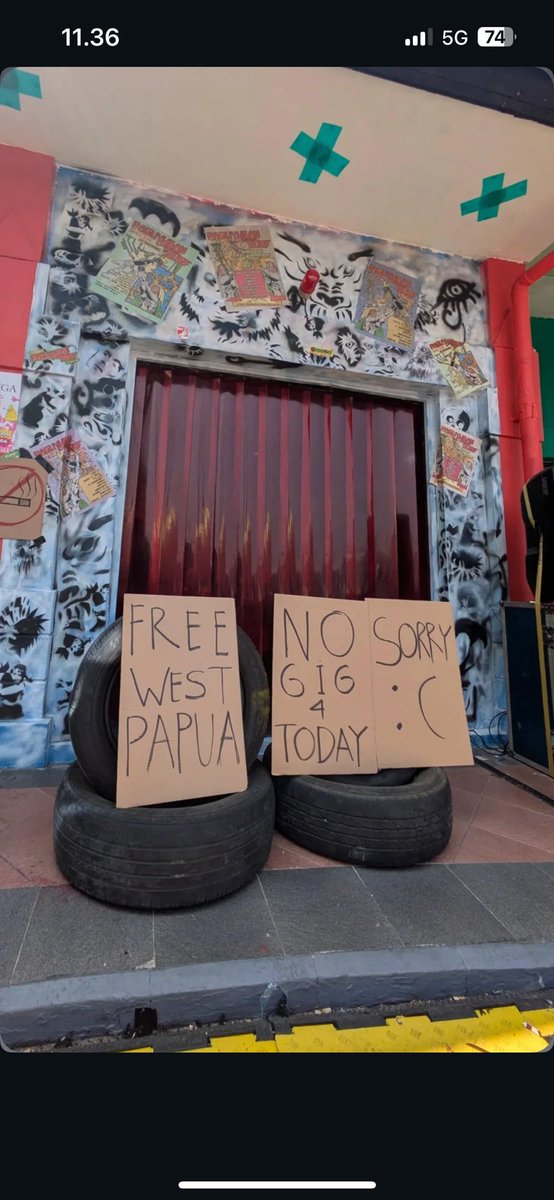 11.36
5G
74
FREE
WEST
PAPUA
NO
GIG
4
TODAY
SORRY
:(